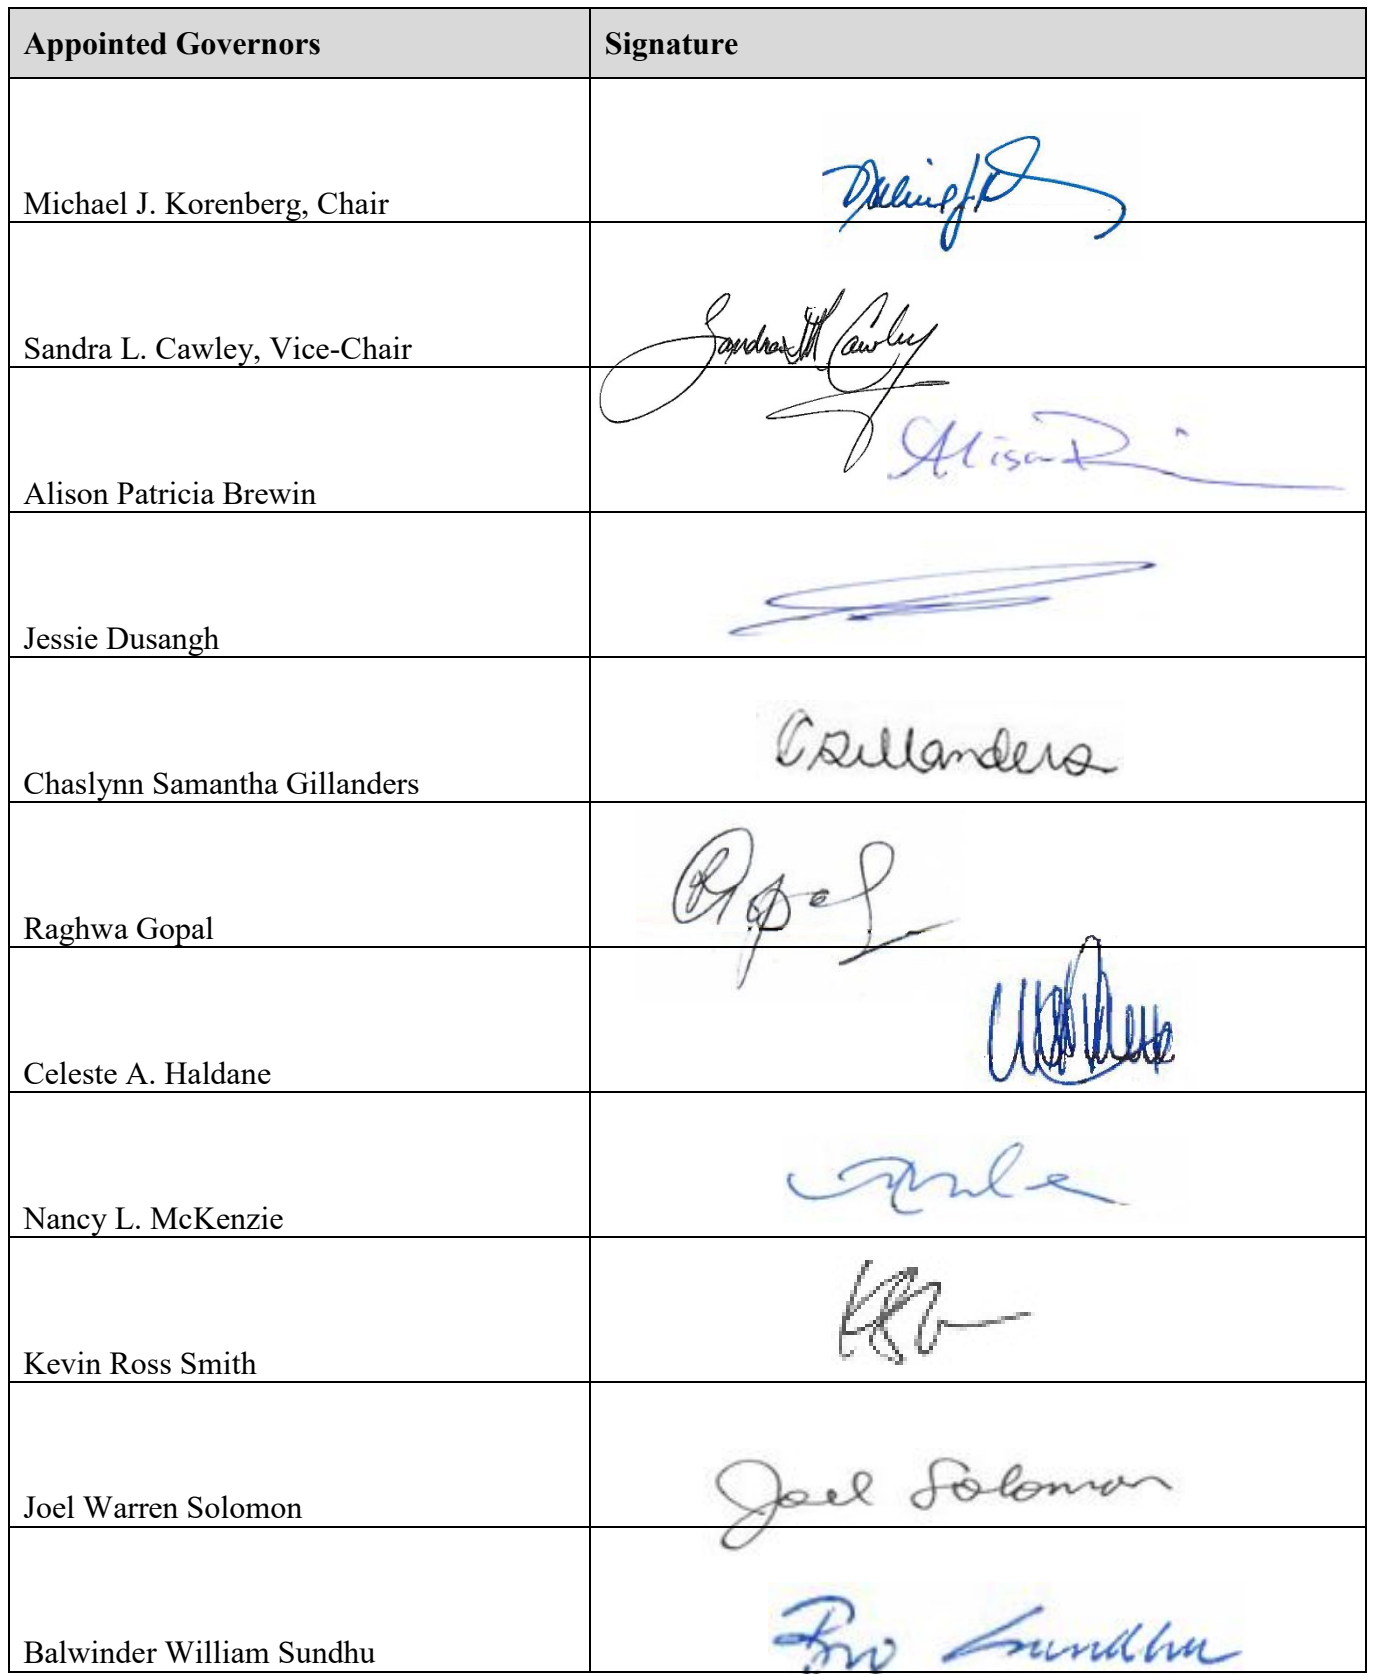 Appointed Governors Signature
Michael J. Korenberg, Chair
Sandra L. Cawley, Vice-Chair Sandra M Cawley
Alison Patricia Brewin Alison
Jessie Dusangh
Chaslynn Samantha Gillanders CGillanders
Raghwa Gopal RGopal
Celeste A. Haldane
Nancy L. McKenzie
Kevin Ross Smith
Joel Warren Solomon Joel Solomon
Balwinder William Sundhu Sundhu